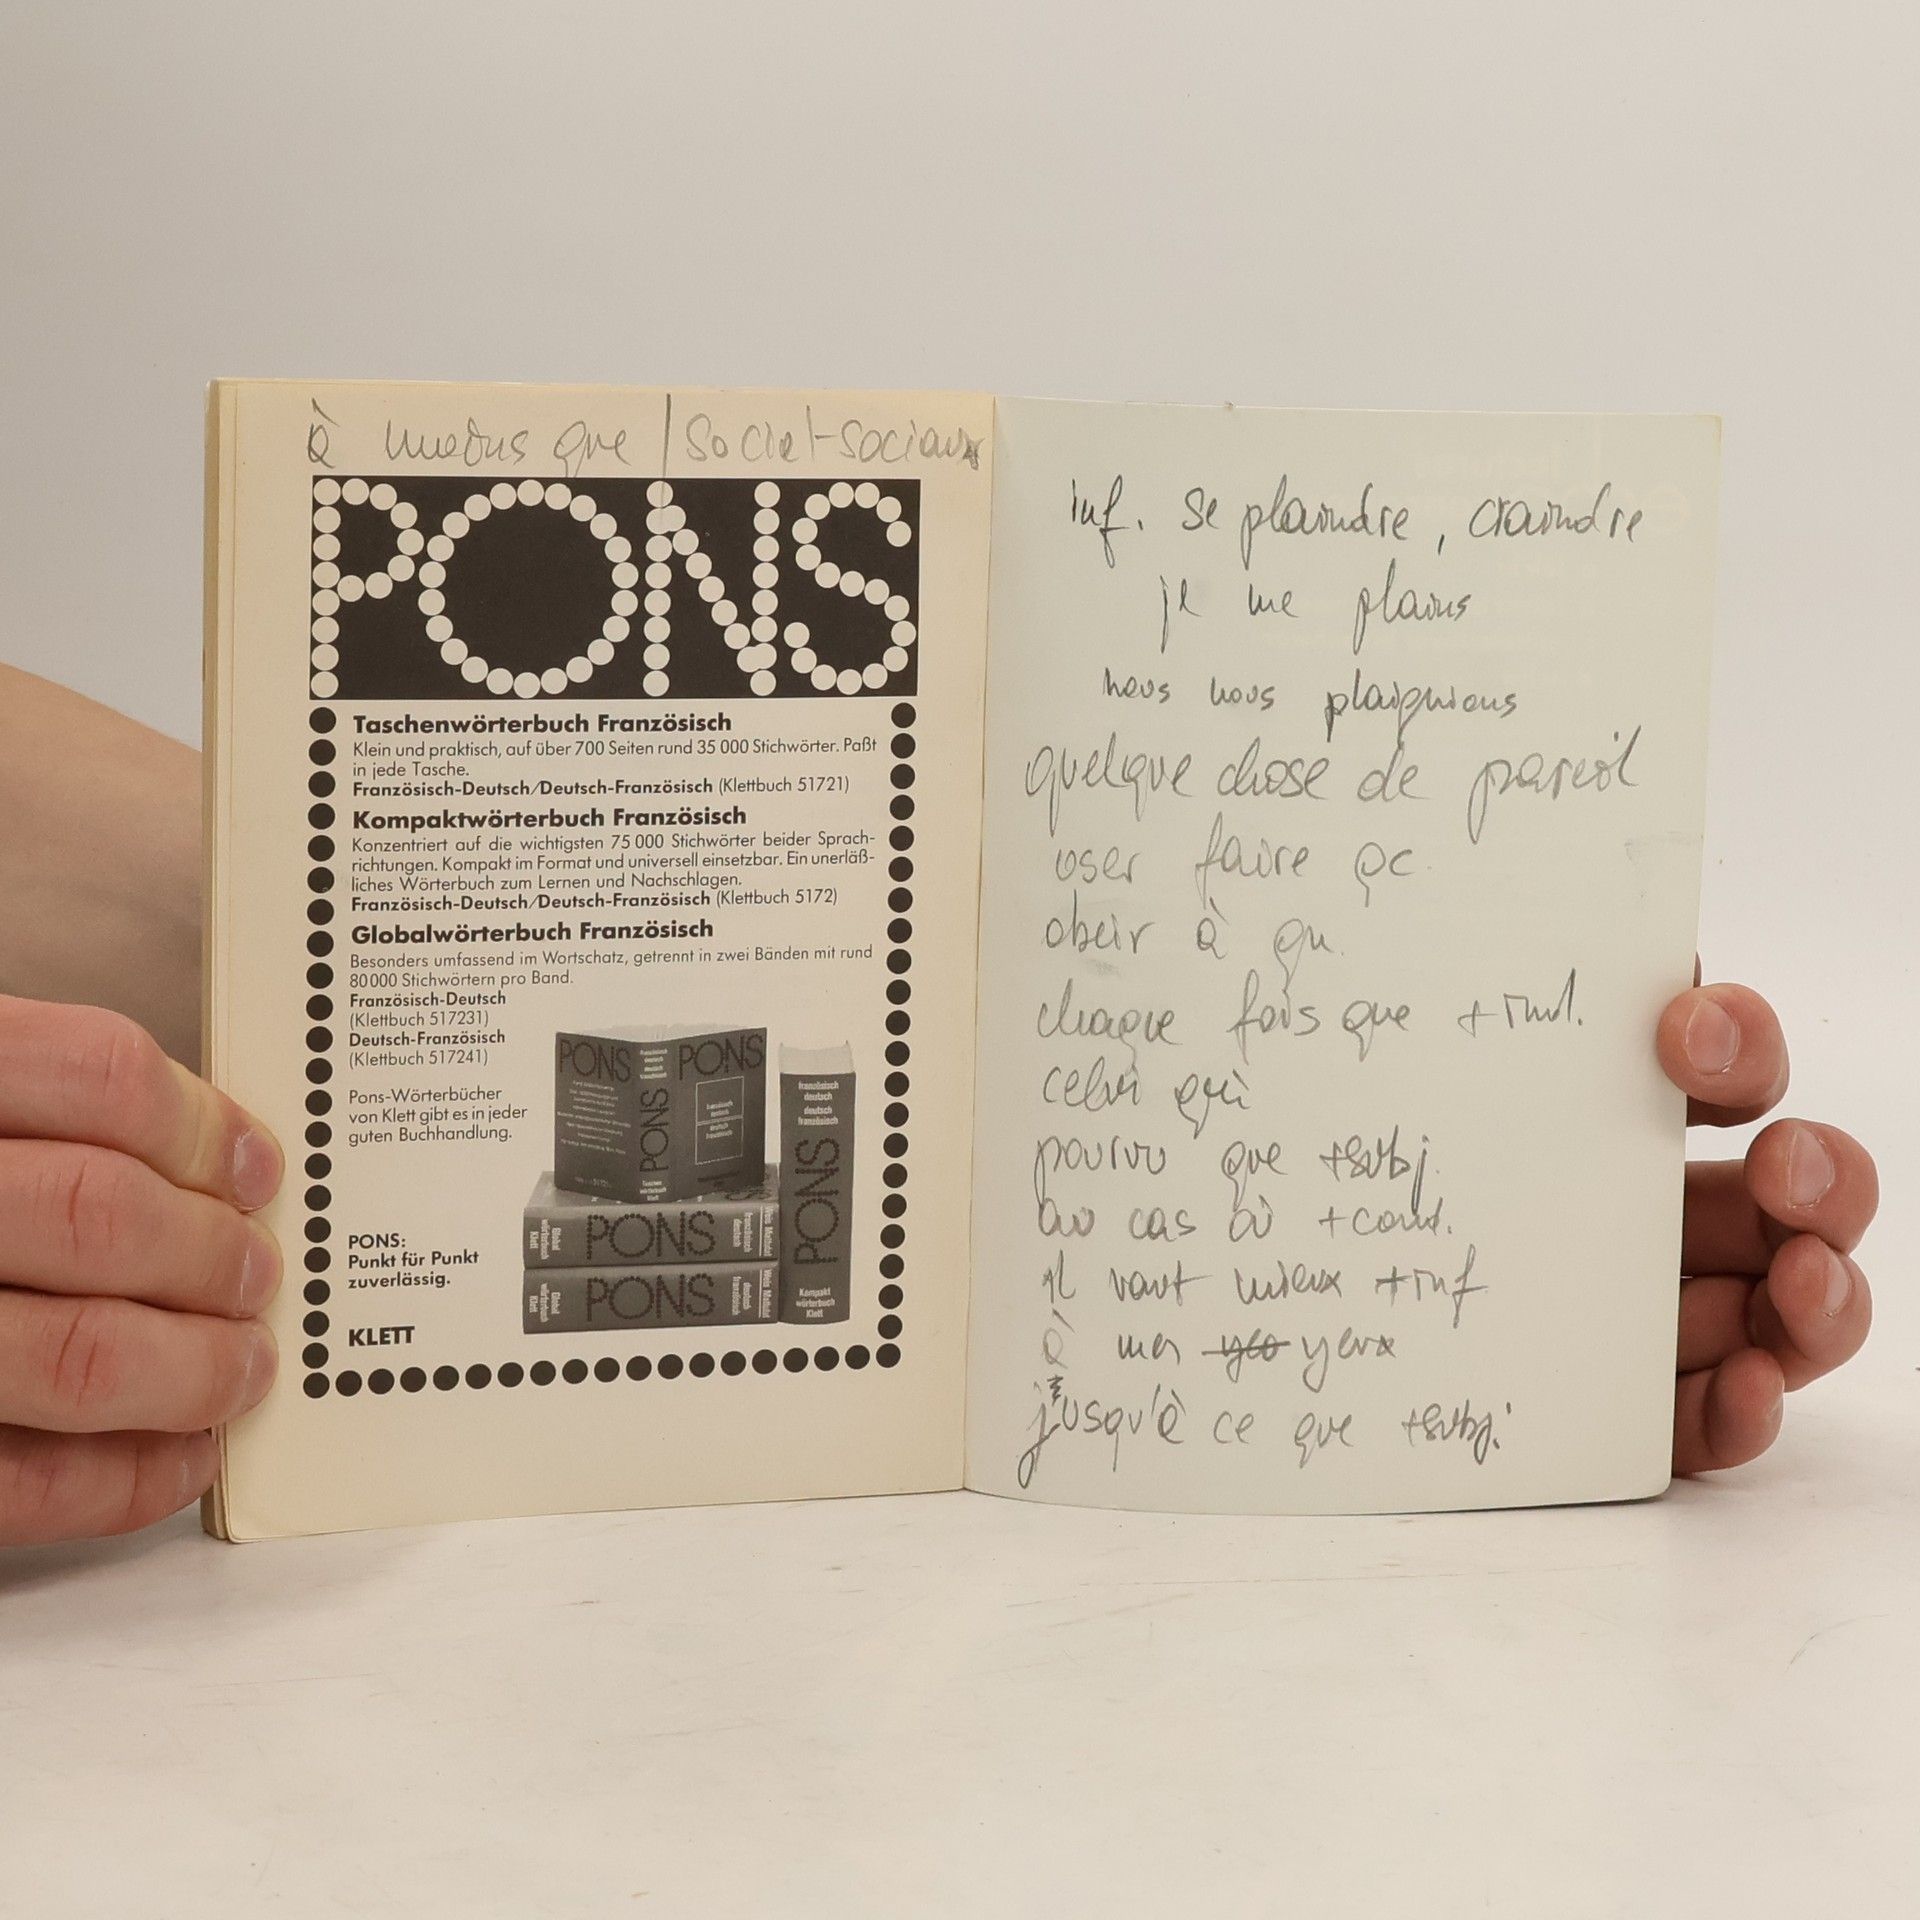 à moins que | social-sociaux
PONS
Taschenwörterbuch Französisch
Klein und praktisch, auf über 700 Seiten rund 35 000 Stichwörter. Paßt
in jede Tasche.
Französisch-Deutsch/Deutsch-Französisch (Klettbuch 51721)
Kompaktwörterbuch Französisch
Konzentriert auf die wichtigsten 75 000 Stichwörter beider Sprach-
richtungen. Kompakt im Format und universell einsetzbar. Ein unerläß-
liches Wörterbuch zum Lernen und Nachschlagen.
Französisch-Deutsch/Deutsch-Französisch (Klettbuch 5172)
Globalwörterbuch Französisch
Besonders umfassend im Wortschatz, getrennt in zwei Bänden mit rund
80 000 Stichwörtern pro Band.
Französisch-Deutsch
(Klettbuch 517231)
Deutsch-Französisch
(Klettbuch 517241)
Pons-Wörterbücher
von Klett gibt es in jeder
guten Buchhandlung.
PONS:
Punkt für Punkt
zuverlässig.
KLETT
PONS
PONS
PONS
PONS
französisch
deutsch
deutsch
französisch
PONS
Kompakt
wörterbuch
Klett
Global
wörterbuch
Klett
PONS
französisch
deutsch
Weis Mattutat
Global
wörterbuch
Klett
PONS
deutsch
französisch
Weis Mattutat
inf. se plaindre, craindre
je me plains
nous nous plaignions
quelque chose de pareil
oser faire qc.
obeir à qn.
chaque fois que + ind.
celui qui
pourvu que + subj.
au cas où + cond.
il vaut mieux + inf
mes yeux
jusqu'à ce que + subj.